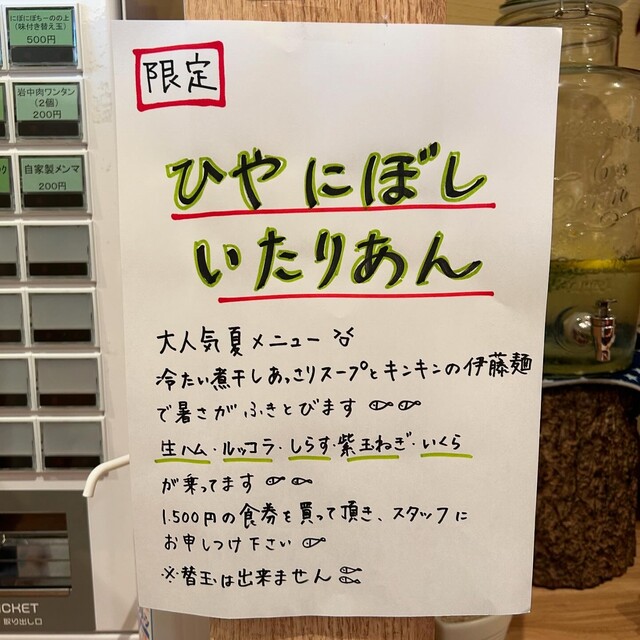 にぼにぼちーのの上
(味付き替え玉)
500円
岩中肉ワンタン
(2個)
200円
自家製メンマ
200円
限定
ひやにぼし
いたりあん
大人気夏メニュー
冷たい煮干しあっさりスープとキンキンの伊藤麺
で暑さがふきとびます
生ハム・ルッコラ・しらす・紫玉ねぎ・いくら
が乗ってます
1.500円の食券を買って頂き、スタッフに
お申しつけ下さい
※替玉は出来ません
取り出し口